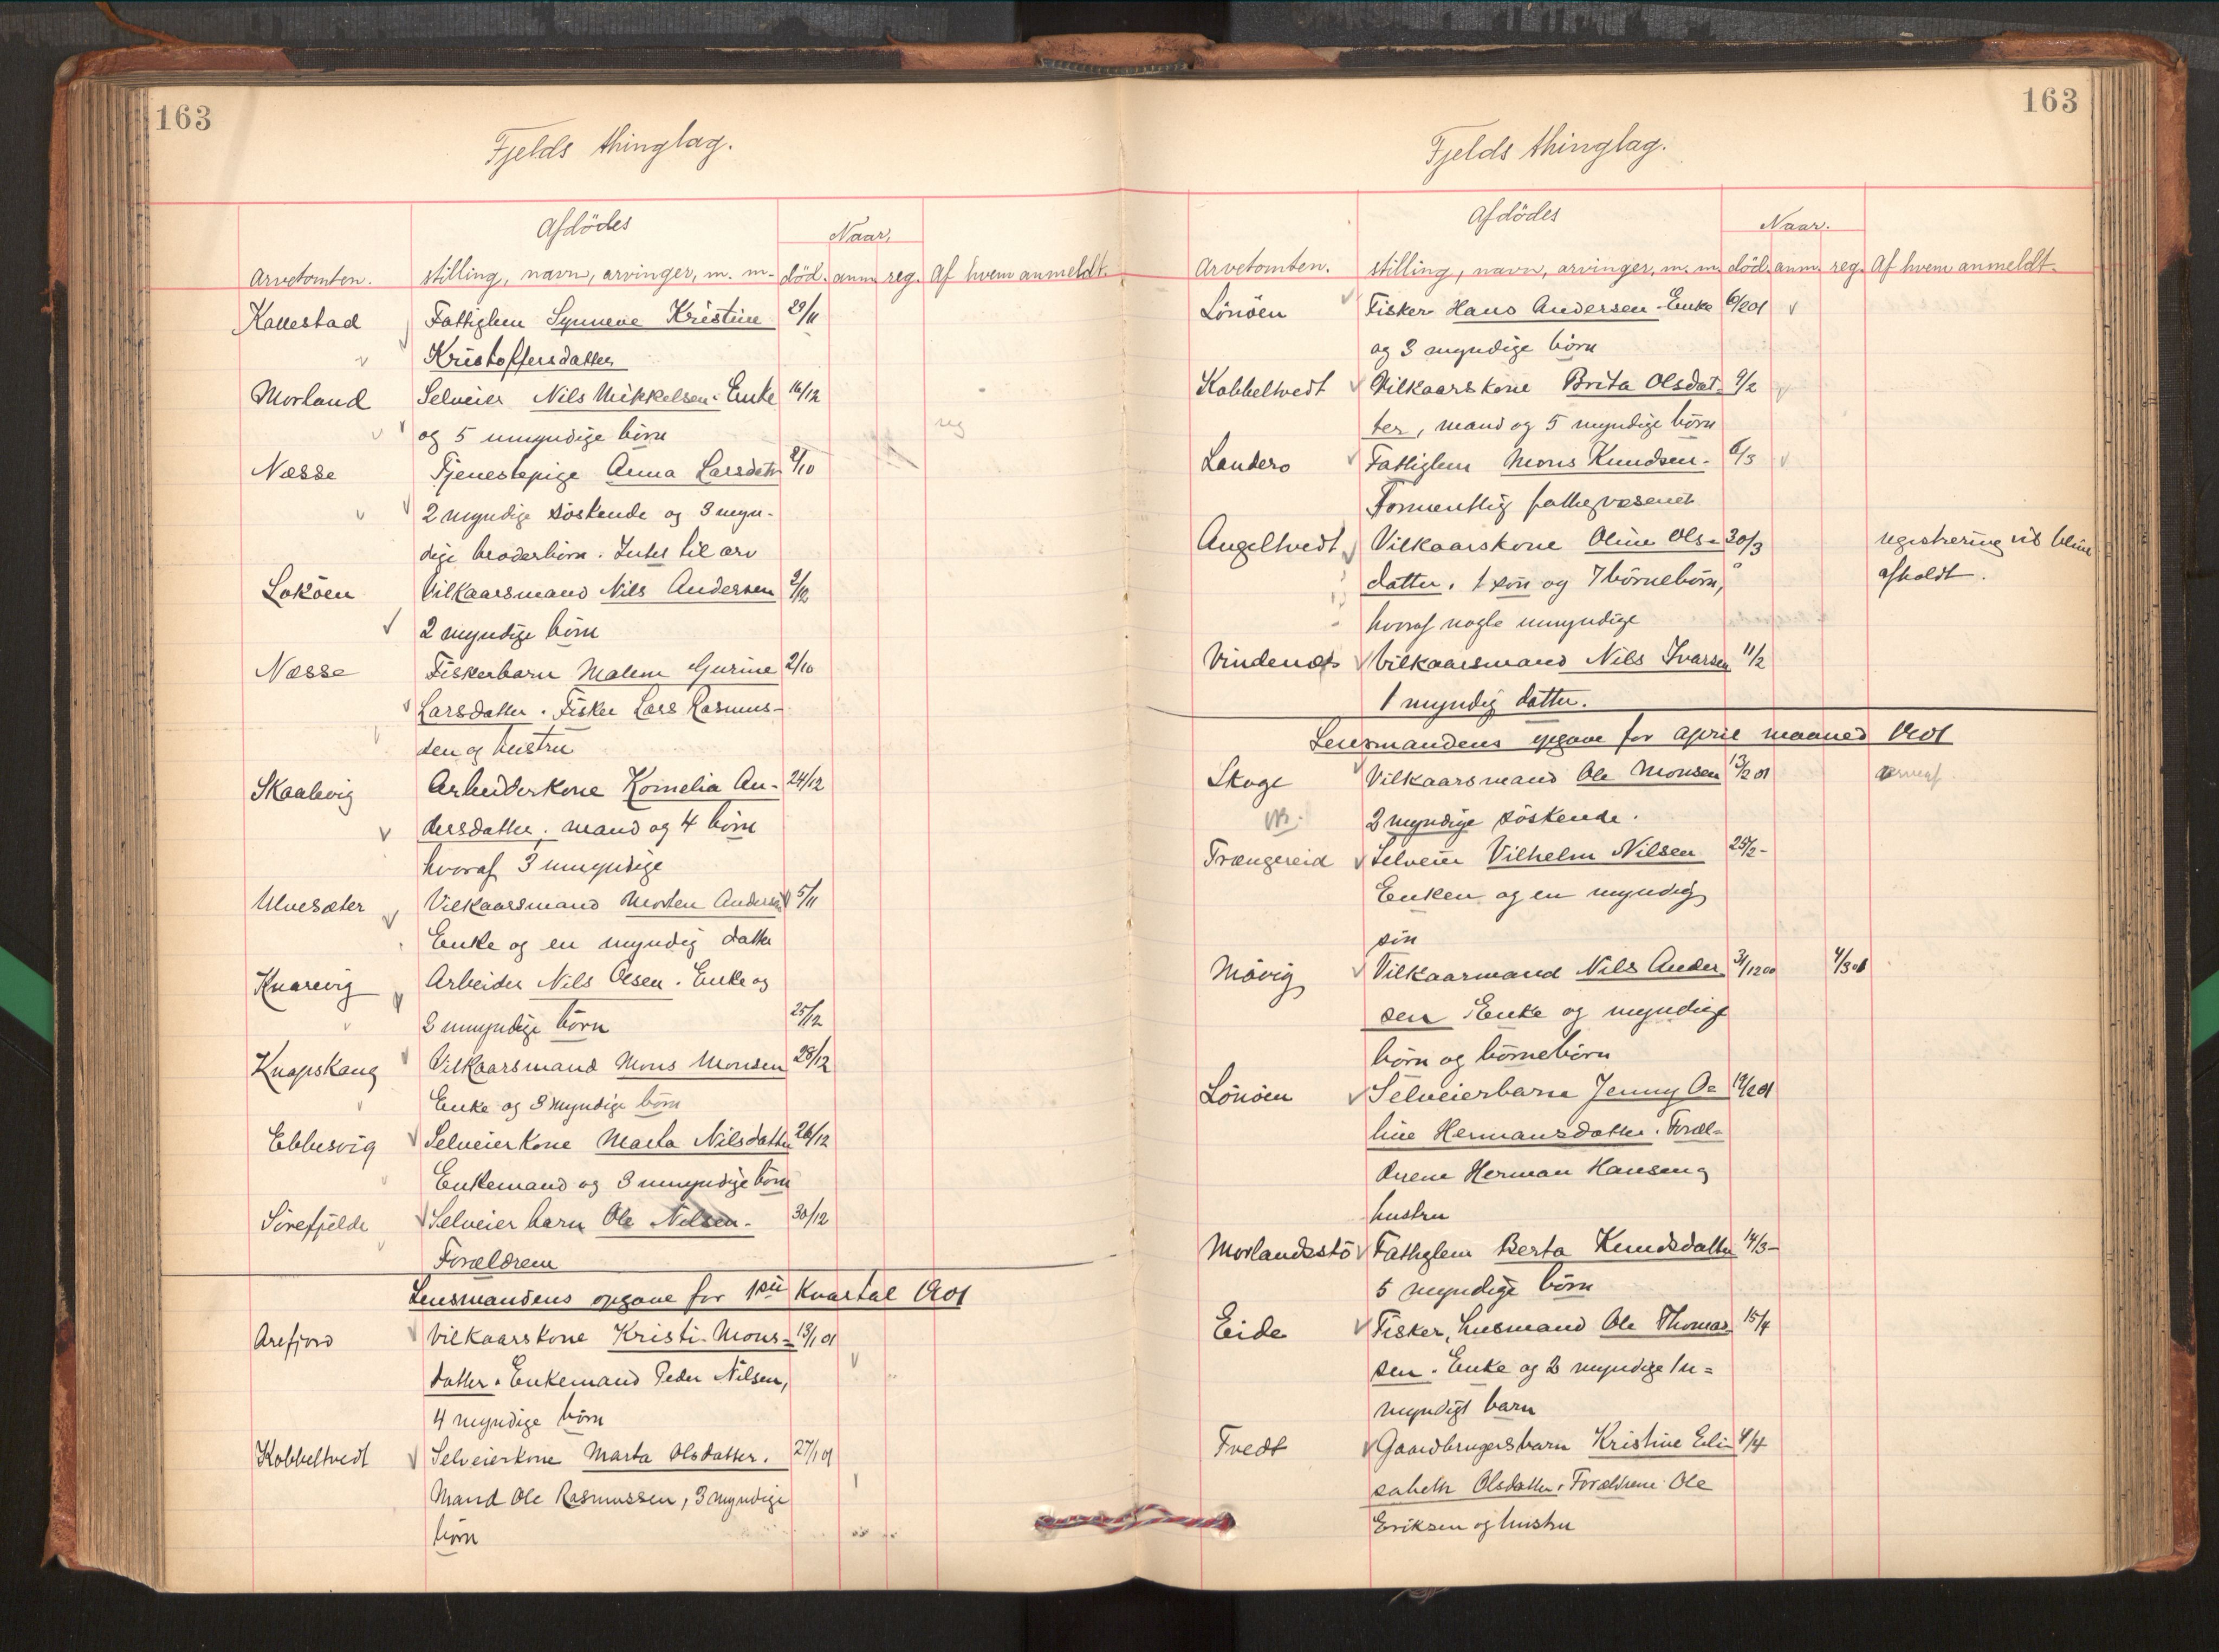 163
Fjelds thinglag.
Afdödes
Naar.
Arvetomten. stilling, navn, arvinger, m. m. död. anm. reg. Af hvem anmeldt.
Kallestad Fattiglem Synneve Kristine 29/11
Kristoffersdatter
Morland Selveier Nils Mikkelsen. Enke 16/12
og 5 umyndige börn reg
Nesse Tjenestepige Anna Larsdatr 2/10
2 myndige söskende og 3 myn-
dige broderbörn. Intet til arv
Loköen Vilkaarsmand Nils Andersen 2/12
2 myndige börn
Nesse Fiskerbarn Malene Gurine 2/10
Larsdatter. Fisker Lars Rasmus-
sen og hustru
Skaalevig Arbeiderkone Kornelia An- 24/12
dersdatter. mand og 4 börn
hvoraf 3 umyndige
Ulvesæter Vilkaarsmand Morten Andersen 5/11
Enke og en myndig datter
Knarevig Arbeider Nils Olsen. Enke og
3 umyndige börn 25/12
Knapskaug Vilkaarsmand Mons Monsen 28/12
Enke og 3 myndige börn
Ebbesvig Selveierkone Marta Nilsdatter 26/12
Enkemand og 3 umyndige börn
Sörefjelde Selveier barn Ole Nilsen. 30/12
Forældrene
Lensmandens opgave for 1ste Kvartal 1901
Arefjord Vilkaarskone Kristi Mons= 13/1 01
datter. Enkemand Peder Nilsen,
4 myndige börn
Kobbeltvedt Selveierkone Marta Olsdatter. 27/1 01
Mand Ole Rasmussen, 3 myndige
börn
163
Fjelds thinglag.
Afdödes
Naar.
Arvetomten. stilling, navn, arvinger, m. m. död. anm. reg. Af hvem anmeldt.
Lönöen Fisker Hans Andersen. Enke 6/2 01
og 3 myndige börn
Kobbeltvedt Vilkaarskone Brita Olsdat- 9/2
ter, mand og 5 myndige börn
Landero Fattiglem Mons Knudsen. 6/3
Formentlig fattigvæsenet
Angeltvedt Vilkaarskone Oline Ols= 30/3 registrering vil blive
datter. 1 sön og 7 börnebörn, afholdt.
hvoraf nogle umyndige
Vindenes Vilkaarsmand Nils Ivarsen 11/2
1 myndig datter.
Lensmandens opgave for april maaned 1901
Skoge Vilkaarsmand Ole Monsen 13/2 01
2 myndige söskende.
Trængereid Selveier Vilhelm Nilsen 25/2 -
Enken og en myndig
sön
Mövig Vilkaarmand Nils Ander 31/12 00 4/3 01
sen Enke og myndige
börn og börnebörn
Lönöen Selveierbarn Jenny O= 19/2 01
line Hermansdatter. Foræl=
drene Herman Hansen og
hustru
Morlandsstö Fattiglem Berta Knudsdatter 14/3 -
5 myndige börn
Eide Fisker, husmand Ole Thomas 15/4
sen. Enke og 2 myndige 1 u=
myndigt barn
Tvedt Gaardbrugersbarn Kristine Eli= 4/4
sabeth Olsdatter. Forældrene Ole
Eriksen og hustru